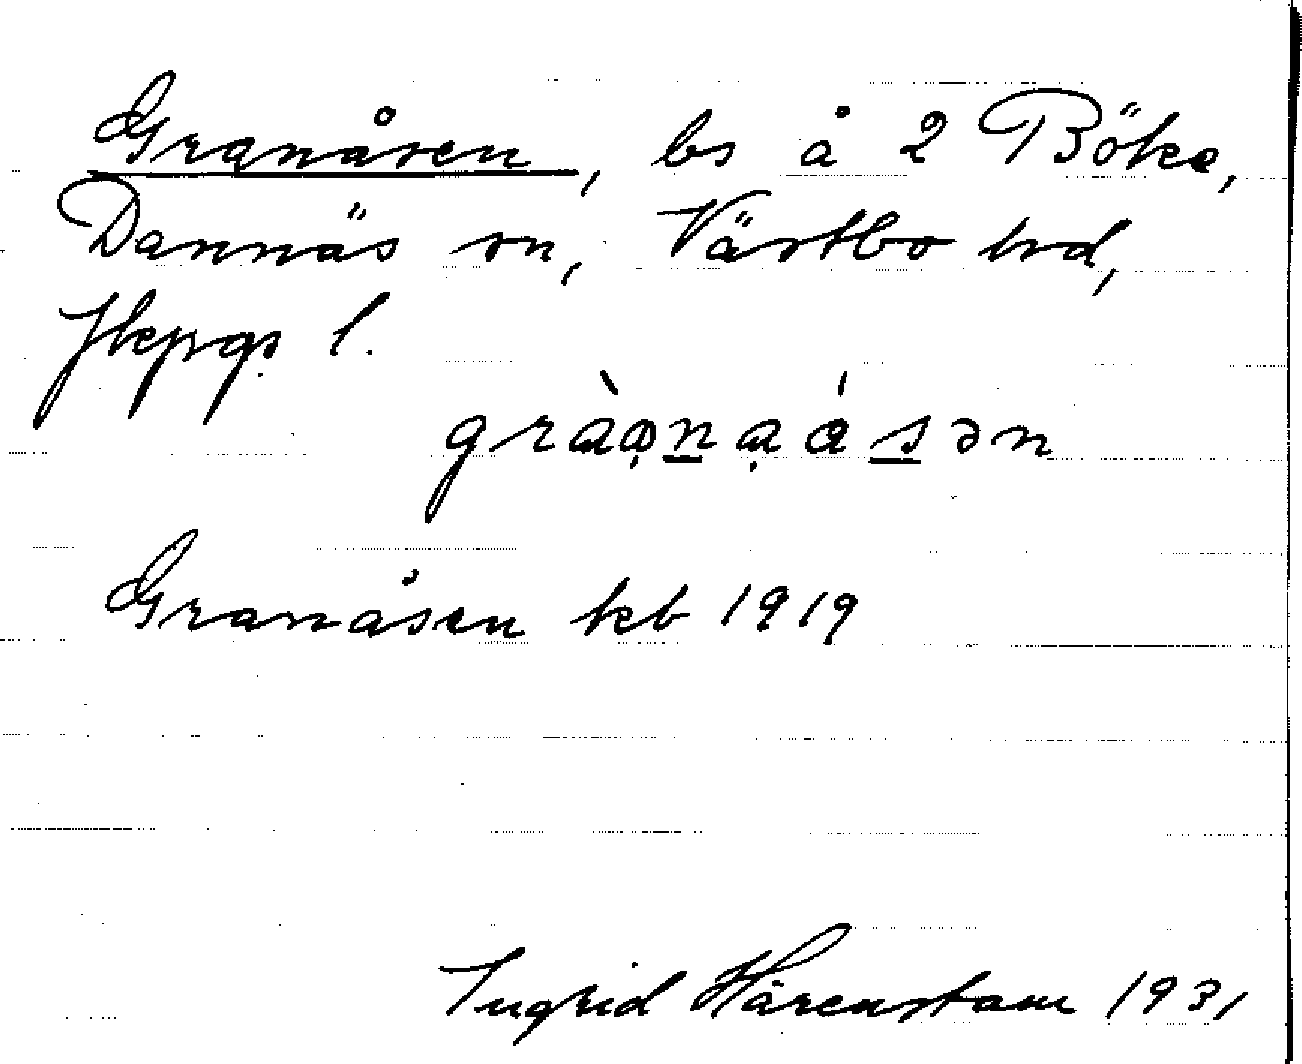 Granåsen, bs å 2 Böke,
Dannäs sn, Västbo hd,
Jkpgs l.
Granåsen kb 1919
Ingrid Härenstam 1931